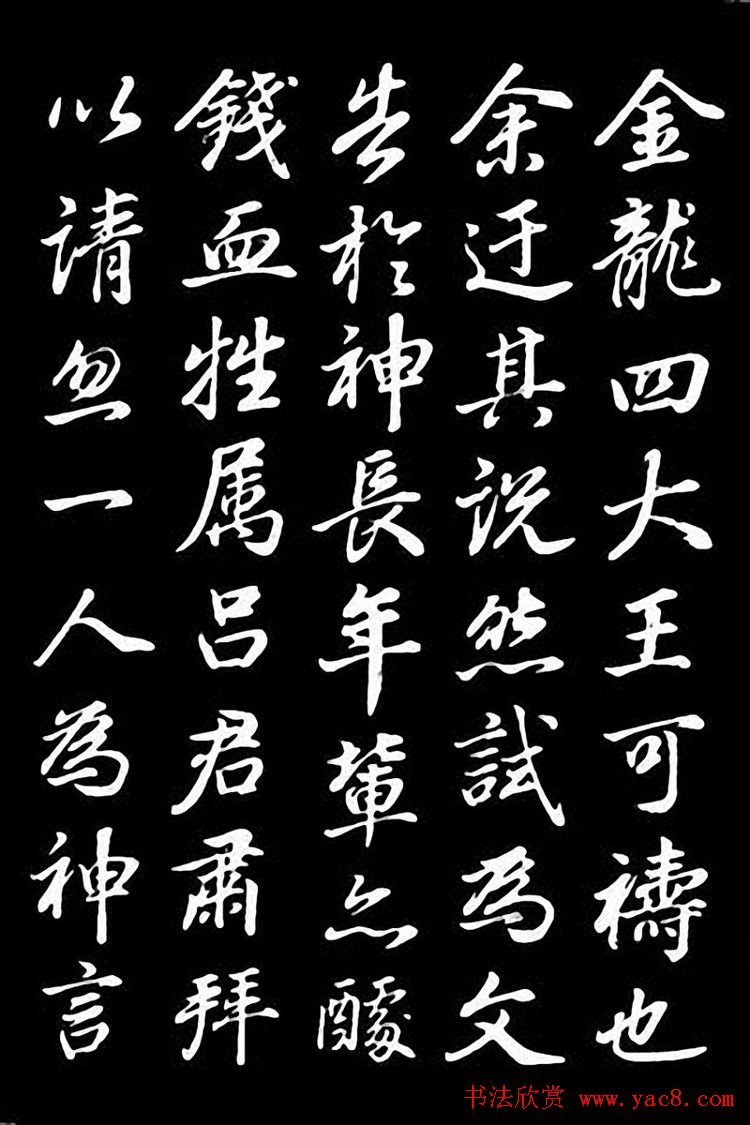 金龍四大王可禱也
余迂其説然試為文
告於神長年輩亦醵
錢血牲属吕君肅拜
以请忽一人為神言
书法欣赏 www.yac8.com